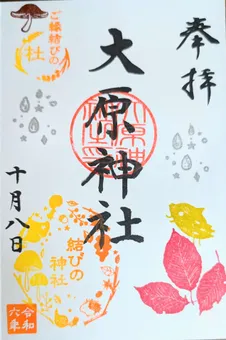 奉拝
大原神社
ご縁結びの
社
十月八日
結びの
神社
令和
六年